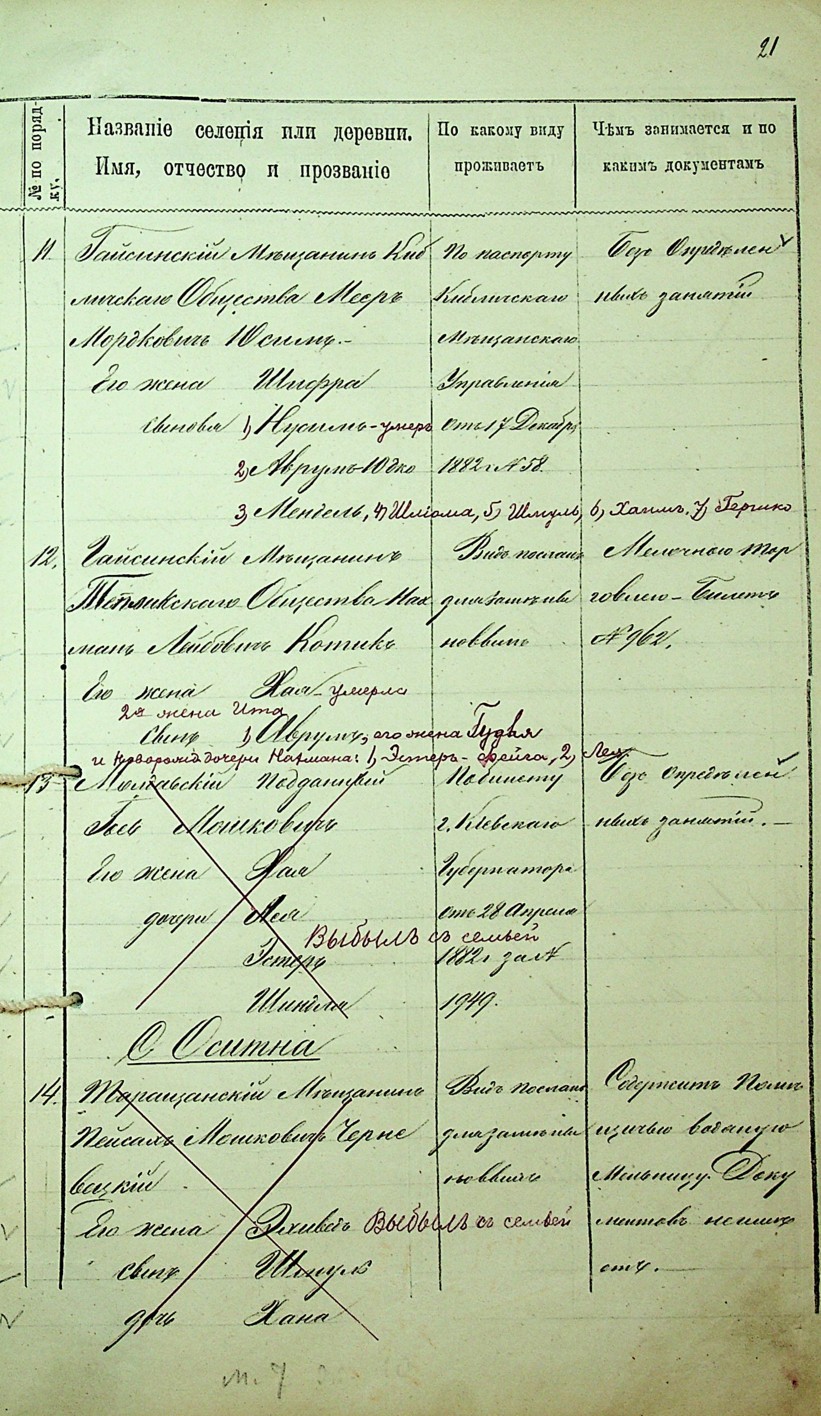 21
№ по поряд-
ку.
Названіе селенія или деревни.
Имя, отчество и прозваніе
По какому виду
проживаетъ
Чѣмъ занимается и по
какимъ документамъ
11 Гайсинскій Мѣщанинъ Киб
личскаго Общества Мееръ
Мордковичъ Юсимъ.-
Его жена Шифра
сыновья 1) Нусимъ - умеръ
2) Аврумъ-Юдко
3) Мендель, 4) Шліома, 5) Шмуль, 6) Хаимъ, 7) Гершко
По паспорту
Кибличскаго
Мѣщанскаго
Управленія
отъ 17 Декабря
1882 г № 58.
Безъ Опредѣлен
ныхъ занятій
12. Гайсинскій Мѣщанинъ
Тепликскаго Общества Нах
манъ Лейбовичъ Котикъ
Его жена Хая - умерла
2я жена Ита
сынъ 1) Аврумъ, его жена Гудья
и новорожд дочери Нахмана: 1) Эстеръ-Фейга, 2) Лея
Видъ посланъ
для замѣны
новымъ
Мелочною тор
говлею - Билетъ
№ 962.
13 Молдавскій Подданный
Мошковичъ
Его жена Хая
дочери Лея
Выбылъ съ семьей
Эстеръ
Шиндля
По билету
г. Кіевскаго
Губернатора
отъ 28 Апреля
1882 г за №
1949.
Безъ опредѣлен
ныхъ занятій. -
С. Оситна
14. Таращанскій Мѣщанинъ
Пейсахъ Мошковичъ Черне
вецкій
Его жена Выбылъ съ семьей
сынъ Шмуль
дочь Хана
Видъ посланъ
для замѣны
новымъ
Содержитъ Помѣ
щичью водяную
Мельницу. Доку
ментовъ неимѣ
етъ. -
м. 7